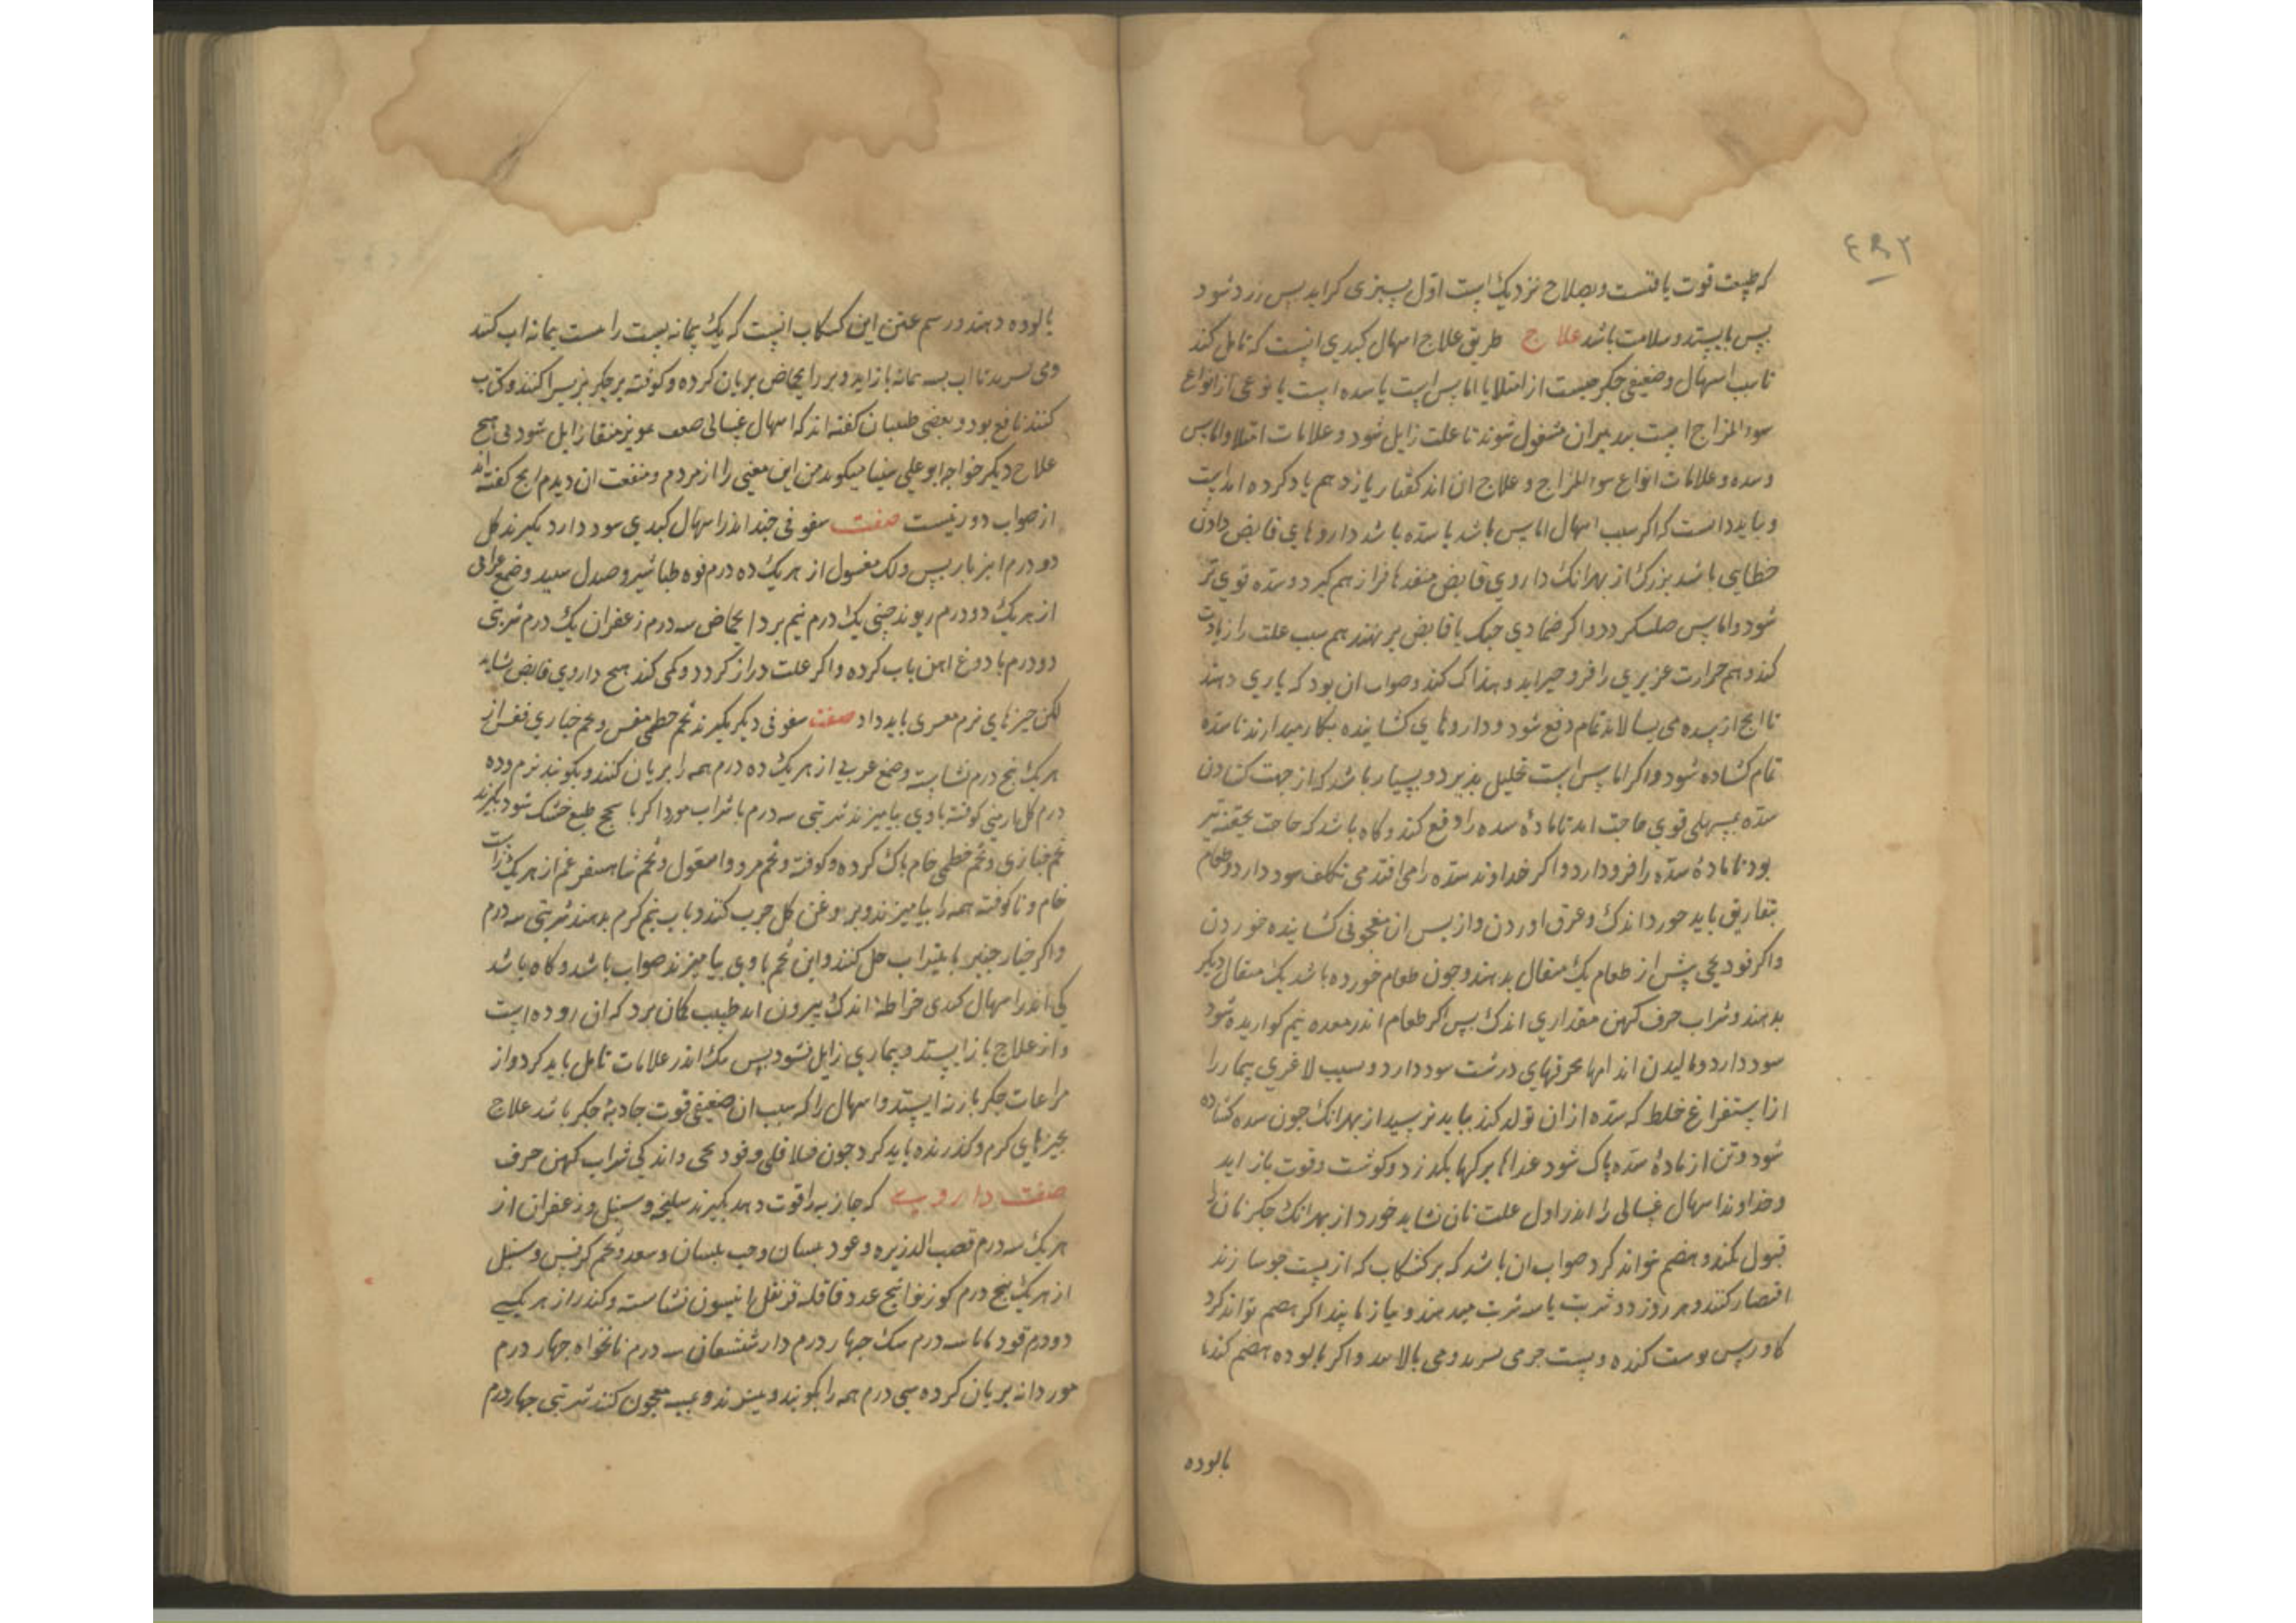 ۴۹۲
که طبیعت قوت یافتست و بصلاح نزدیک است اول سبزی کراید پس زرد شود
پس بایستد و سلامت باشد علاج طریق علاج اسهال کبدی انست که تامل کند
تا سبب اسهال و ضعیفی جکر جیست از امتلا یا اماس است یا سده است یا نوعی از انواع
سوء المزاج است بتدبیر ان مشغول شوند تا علت زایل شود و علامات امتلا و اماس
و سده و علامات انواع سوء المزاج و علاج ان اندر کفتار یازدهم یاد کرده امدست
و بباید دانست که اکر سبب اسهال اماس باشد یا سده باشد داروهای قابض دادن
خطایی باشد بزرک از بهر انک داروی قابض منفذها فراز هم کیرد و سده قوی تر
شود و اماس صلب کردد و اکر ضمادی خنک یا قابض برنهند هم سبب علت را زیادت
کند و هم حرارت غریزی را فرو میراند و هلاک کند و صواب ان بود که یاری دهند
تا انج از سده می بالاید تمام دفع شود و داروهای کشاینده بکار میدارند تا سده
تمام کشاده شود و اکر اماس است تحلیل پذیرد و بسیار باشد که از جهت کشادن
سده بمسهلی قوی حاجت اید تا ماده سده را دفع کند و کاه باشد که حاجت بحقنه تیز
بود تا ماده سده را فرود ارد و اکر خداوند سده را می افتد می تکلف سود دارد و طعام
بتفاریق باید خورد اندک و عرق اوردن و از پس ان معجونی کشاینده خوردن
و اکر فودنجی پیش از طعام یک مثقال بدهند و جون طعام خورده باشد یک مثقال دیکر
بدهند و شراب صرف کهن مقداری اندک پس اکر طعام اندر معده نیم کواریده شود
سود دارد و مالیدن اندامها بخرقهای درشت سود دارد و سبب لاغری بیمار را
از استفراغ خلط که سده از ان تولد کند بباید ترسید از بهر انک جون سده کشاده
شود و تن از ماده سده پاک شود غذاها برکها بکذرد و کوشت و قوت باز اید
و خداوند اسهال غسالی را اندر اول علت نان نشاید خورد از بهر انک جکر نان را
قبول نکند و هضم نتواند کرد صواب ان باشد که بر کشکاب که از پست جو سازند
اقتصار کنند و هر روز دو شربت یا سه شربت میدهند و نیاز مایند اکر هضم تواند کرد
کاورس پوست کنده و پست جو می بزند و می پالایند و اکر پالوده هضم کند با
پالوده
پالوده دهند و رسم این کشکاب انست که یک پیمانه پست را بیست پیمانه اب کنند
و می بزند تا اب بسه پیمانه باز اید و بزر الحماض بریان کرده و کوفته بر جکر بز پراکنند و کباب
کنند نافع بود و بعضی طبیبان کفته اند که اسهال غسالی صعب بمویز منقا زایل شود بی هیچ
علاج دیکر خواجه ابو علی سینا میکوید من این معنی را ازمودم و منفعت ان دیدم انج کفته اند
از صواب دور نیست صفت سفوفی جند اندر اسهال کبدی سود دارد بکیرند کل
دو درم انبرباریس و لک مغسول از هر یک ده درم فوه طباشیر و صندل سپید و صمغ عربی
از هر یک دو درم ریوند چینی یک درم نیم بزر الحماض سه درم زعفران یک درم شربتی
دو درم با دوغ اهن تاب کرده و اکر علت دراز کردد و کمی کند هیچ داروی قابض نشاید
لکن جیزهای نرم مغری باید داد صفت سفوفی دیکر بکیرند تخم خطمی مقشر و تخم خیاری مقشر از
هر یک پنج درم نشاسته و صمغ عربی از هر یک ده درم همه را بریان کنند و بکوبند نرم و ده
درم کل ارمنی کوفته با وی بیامیزند شربتی سه درم با شراب مورد اکر با سحج طبع خشک شود بکیرند
تخم خبازی و تخم خطمی خام پاک کرده و کوفته و تخم مرو و اسبغول و تخم شاهسفرغم از هر یک راست
خام و ناکوفته همه را بیامیزند و بروغن کل جرب کنند و باب نیم کرم بدهند شربتی سه درم
و اکر خیارجنبر با اب حل کنند و این تخم با وی بیامیزند صواب باشد و کاه باشد
کی اندر اسهال کبدی خراطه اندک بیرون اید طبیب کمان برد که ان روده است
و از علاج باز ایستد و بیماری زایل نشود پس نیک اندر علامات تامل باید کرد و از
مراعات جکر باز نه ایستد و اسهال را که سبب ان ضعیفی قوت جاذبه جکر باشد علاج
بجیزهای کرم و کذرنده باید کرد جون فلافلی و فودنجی و اندکی شراب کهن صرف
صفت دارویی که جاذبه را قوت دهد بکیرند سلیخه و سنبل و زعفران از
هر یک سه درم قصب الذریره و عود بلسان و حب بلسان و سعد و تخم کرفس و سنبل
از هر یک پنج درم کوز بوا پنج عدد قاقله قرنفل انیسون نشاسته و کندر از هر یکی
دو درم قردمانا سه درم سک جهار درم دارشیشعان سه درم نانخواه جهار درم
مورد دانه بریان کرده سی درم همه را بکوبند و ببیزند و بمیبه معجون کنند شربتی جهار درم